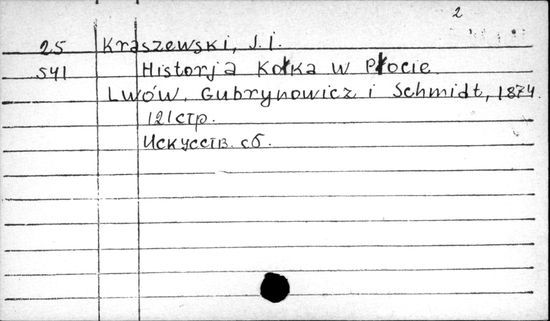 2
25 Kraszewski, J. I.
541 Historja Kołka w Płocie.
Lwów, Gubrynowicz i Schmidt, 1874.
121 стр.
Искусств. сб.